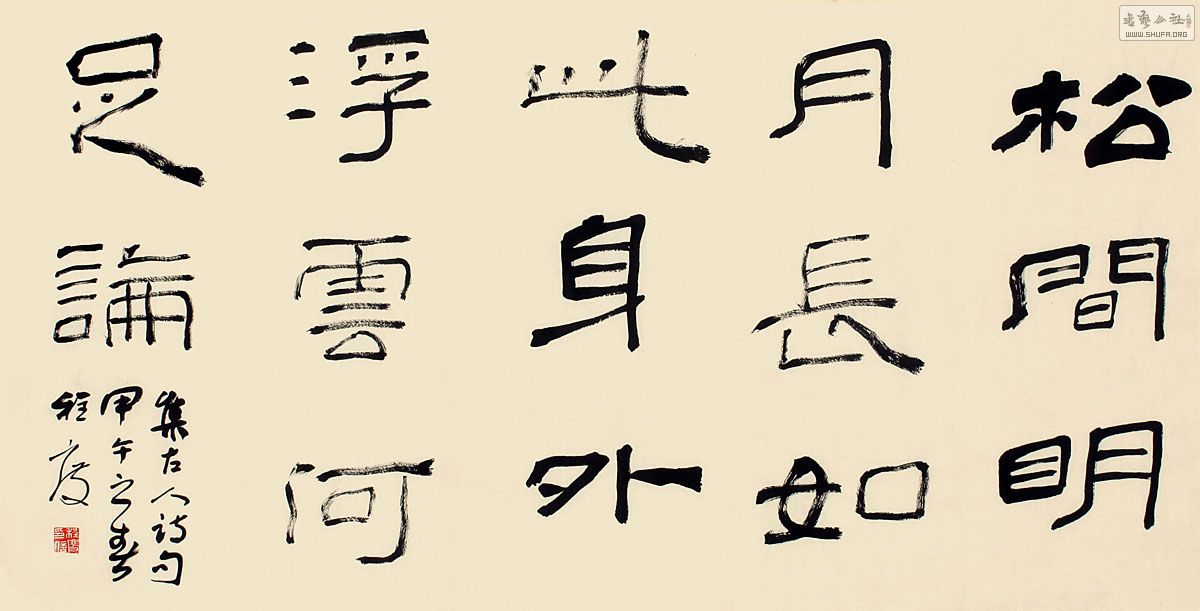 松間明
月長如
此身外
浮雲何
足論
集古人詩句
甲午之春
程度
書藝公社
WWW.SHUFA.ORG